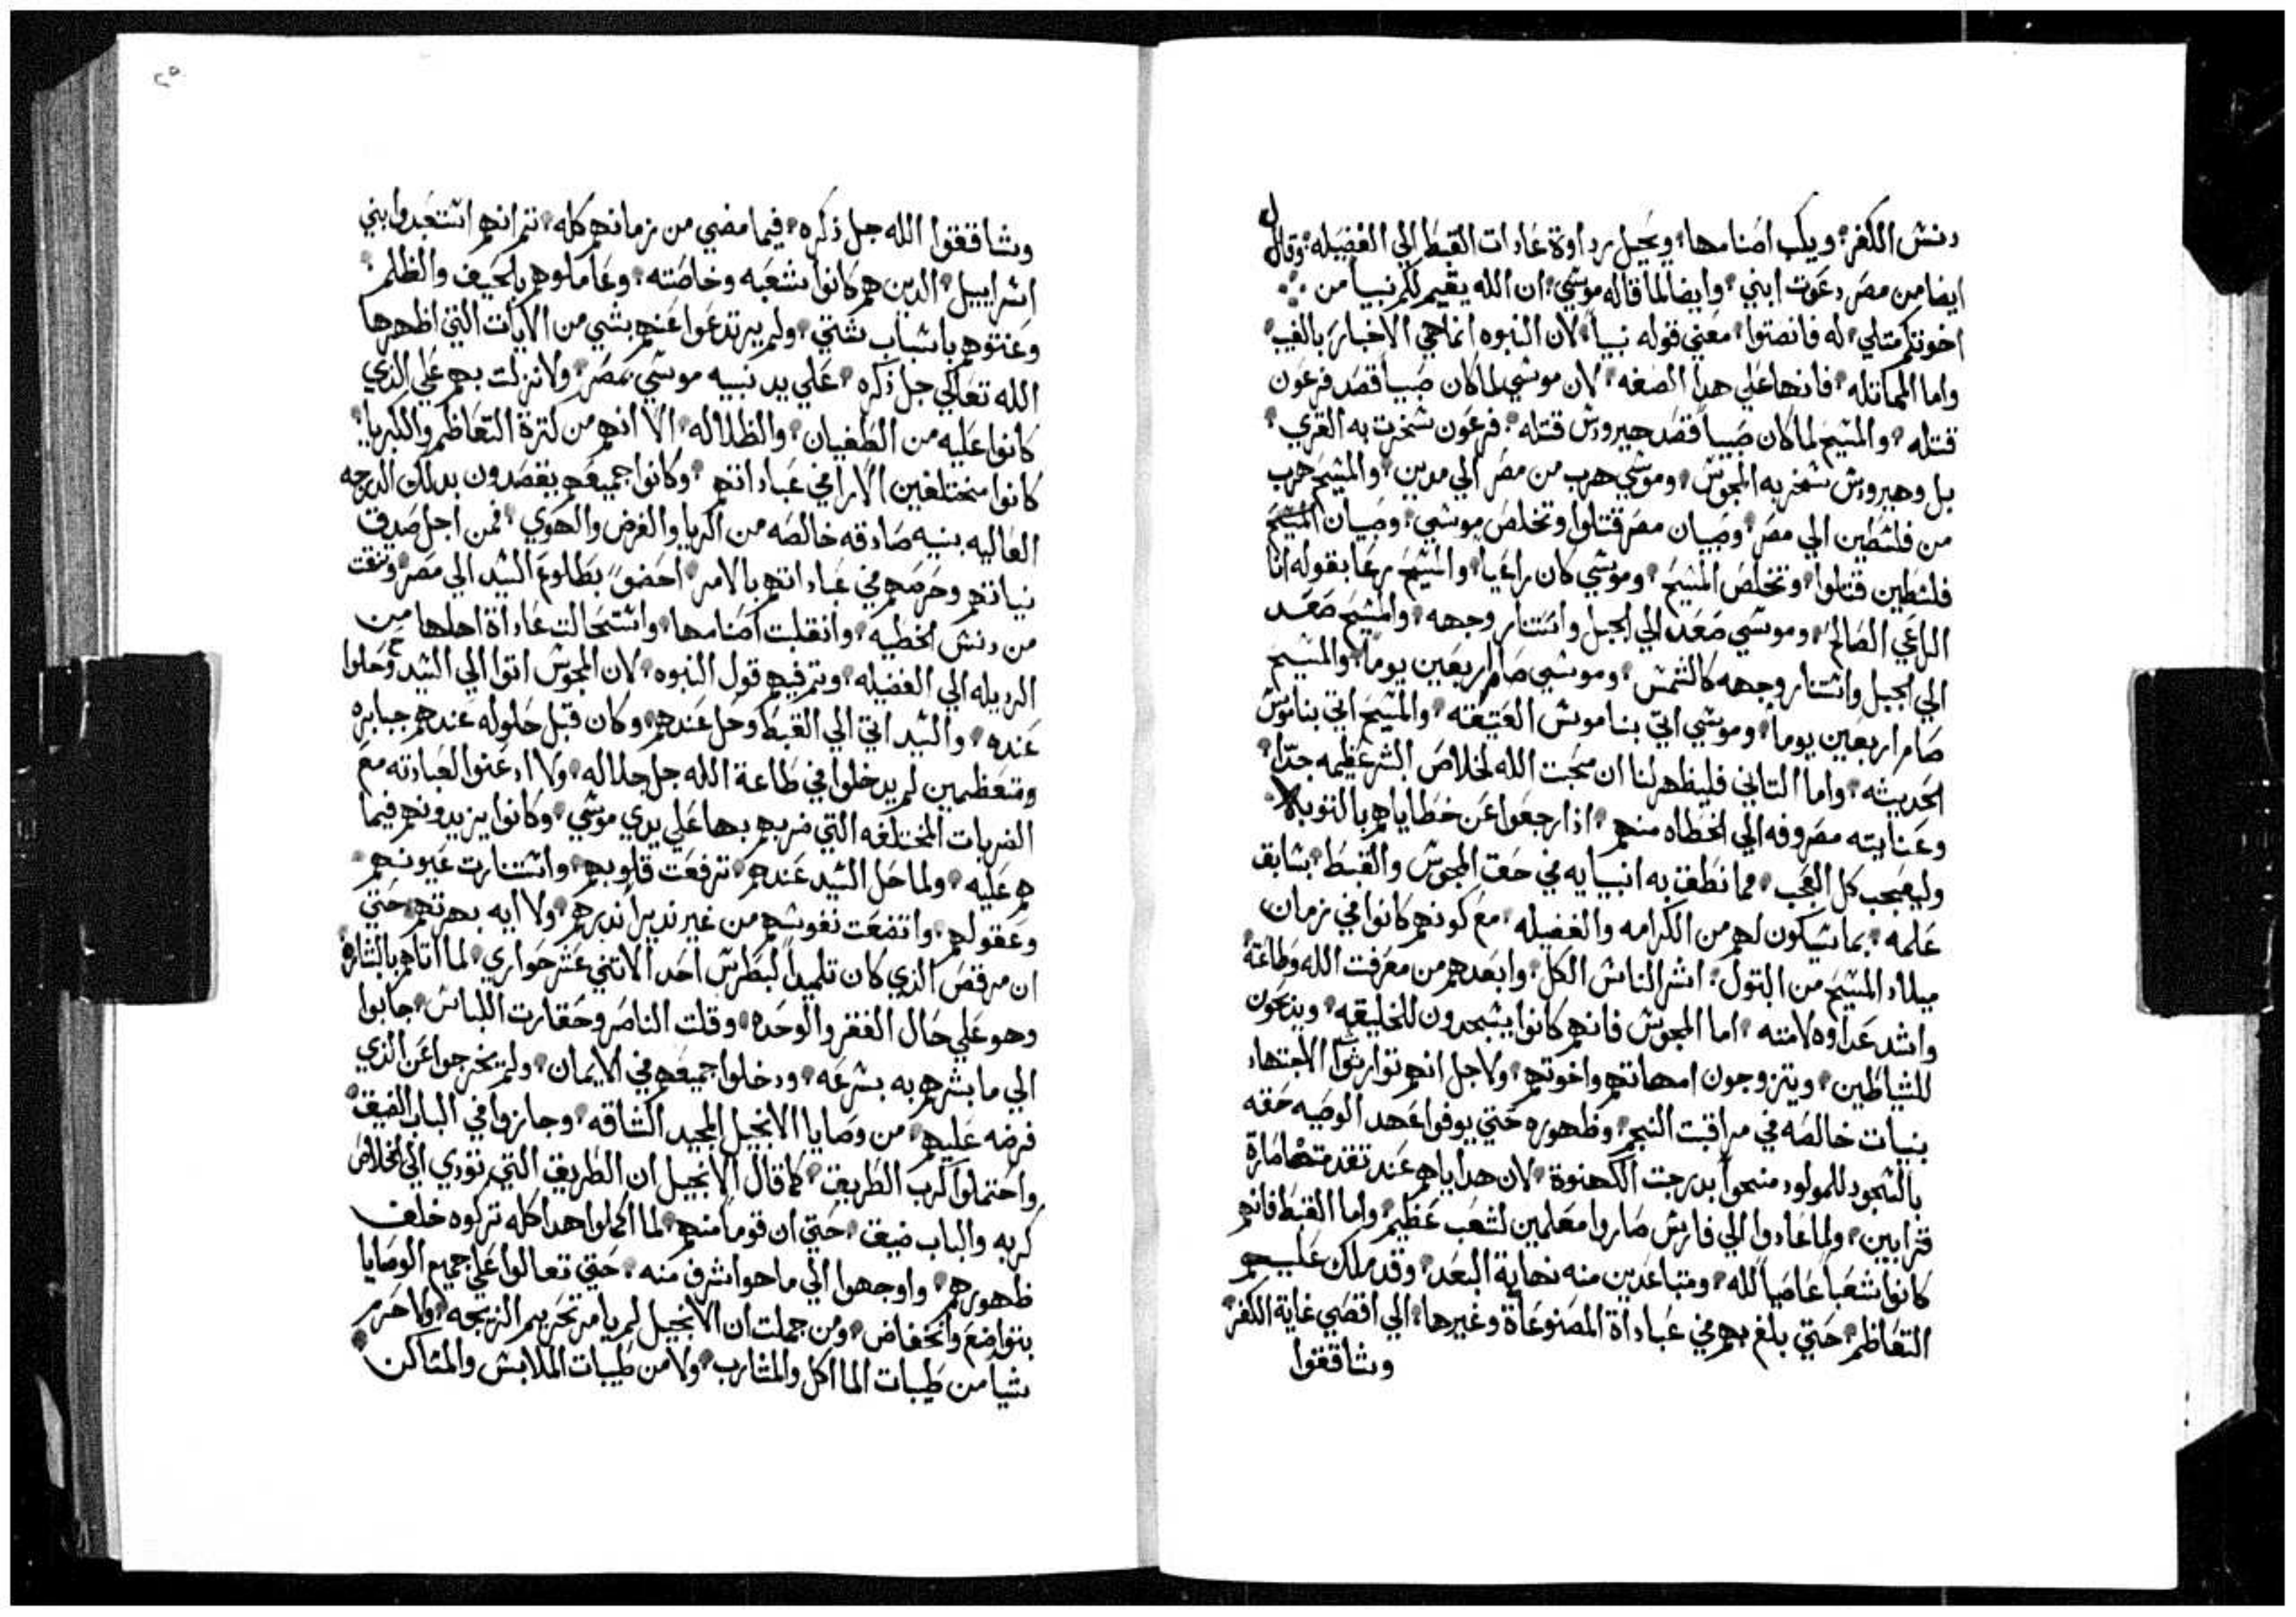 دنش الكفر، ويكب اصنامها، ويحيل رداوة عادات القبط الي الفضيله، وقال
ايضا من مصر دعوت ابني، وايضا لما قاله موشي، ان الله يقيم لكم نبيا من
اخوتكم مثلي، له فانصتوا، معني قوله نبيا، لان النبوه انما هي الاخبار بالغيب،
واما المماتله، فانها علي هدا الصفه، لان موشي لما كان صبيا قصد فرعون
قتله، والمشيح لما كان صبيا قصد هيرودش قتله، فرعون شخرت به القري،
بل وهيرودش شخر به المجوش، وموشي هرب من مصر الي مدين، والمشيح هرب
من فلشطين الي مصر، وصبيان مصر قتلوا وتخلص موشي، وصبيان المشيح
فلشطين قتلوا، وتخلص المشيح، وموشي كان راعيا، والمشيح رعا بقوله انا
الراعي الصالح، وموشي صعد الي الجبل واشتنار وجهه، والمشيح صعد
الي الجبل واشتنار وجهه كالشمش، وموشي صام اربعين يوما، والمشيح
صام اربعين يوما، وموشي اتي بناموش العتيقه، والمشيح اتي بناموش
الحديثه، واما التاني فليظهر لنا ان محبت الله لخلاص البشر عظيمه جدا،
وعنايته مصروفه الي الخطاه منهم، ادا رجعوا عن خطاياهم بالتوبه،
وليعجب كل العجب، مما نطقت به انبيايه في حق المجوش والقبط، بشابق
علمه، بما شيكون لهم من الكرامه والفضيله، مع كونهم كانوا في زمان
ميلاد المشيح من البتول، اشر الناش الكل، وابعدهم من معرفت الله وطاعته
واشد عداوه لامته، اما المجوش فانهم كانوا يشجدون للخليقه، ويدبحون
للشياطين، ويتزوجون امهاتهم واخوتهم، ولاجل انهم توارثوا الاجتهاد
بنيات خالصه في مراقبت النجم، وظهوره حتي يوفوا عهد الوصيه حقه
بالشجود للمولود منحوا بدرجت الكهنوة، لان هداياهم عند تقدمتها صارة
قرابين، ولما عادوا الي فارش صاروا معلمين لشعب عظيم، واما القبط فانهم
كانوا شعبا عاصيا لله، ومتباعدين منه نهاية البعد، وقد ملك عليهم
التعاظم، حتي بلغ بهم في عباداة المصنوعاة وغيرها، الي اقصي غاية الكفر
وشاققوا
٢٥
وشاققوا الله جل دكره، فيما مضي من زمانهم كله، تم انهم اشتعبدوا بني
اشراييل، الدين هم كانوا شعبه وخاصته، وعاملوهم بالحيف والظلم،
وعنتوهم باشباب شتي، ولم يرتدعوا عنهم بشي من الايات التي اظهرها
الله تعالي جل دكره، علي يد نبيه موشي بمصر، ولا نزلت بهم علي الدي
كانوا عليه من الطغيان، والظلاله، الا انهم من كترة التعاظم والكبريا،
كانوا مختلفين الارا في عباداتهم، وكانوا جميعهم يقصدون بدلك الدرجه
العاليه بنيه صادقه خالصه من الريا والغرض والهوي، فمن اجل صدق
نياتهم وحرصهم في عباداتهم بالامر، احضوا بطلوع الشيد الي مصر ونقت
من دنش الخطيه، وانقلبت اصنامها، واشتحالت عاداة اهلها من
الرديله الي الفضيله، وتم فيهم قول النبوه، لان المجوش اتوا الي الشيد وحلوا
عنده، والشيد اتي الي القبط وحل عندهم، وكان قبل حلوله عندهم جبابره
ومتعظمين لم يدخلوا في طاعة الله جل جلاله، ولا ادعنوا لعبادته مع
الضربات المختلفه التي ضربهم بها علي يدي موشي، وكانوا يزيدونهم فيما
هم عليه، ولما حل الشيد عندهم، ترفعت قلوبهم، واشتنارت عيونهم
وعقولهم، واتضعت نفوشهم من غير ندير اندرهم، ولا ايه بهرتهم حتي
ان مرقص الدي كان تلميدا لبطرش احد الاتني عشر حواري، لما اتاهم بالبشاره
وهو علي حال الفقر والوحده، وقلت الناصر وحقارت اللباش، جابوا
الي ما بشرهم به بشرعه، ودخلوا جميعهم في الايمان، ولم يخرجوا عن الدي
فرضه عليهم، من وصايا الانجيل المجيد الشاقه، وجازوا في الباب الضيق
واحتملوا كرب الطريق، كما قال الانجيل ان الطريق التي تودي الي الخلاص
كربه والباب ضيق، حتي ان قوما منهم، لما اكملوا هدا كله تركوه خلف
ظهورهم، واوجهوا الي ما هو اشرف منه، حتي تعالوا علي جميع الوصايا
بتواضع وانخفاض، ومن جملت ان الانجيل لم يامر بتحريم الزيجه، ولا حرم
شيا من طيبات الماكل والمشارب، ولا من طيبات الملابش والمشاكن